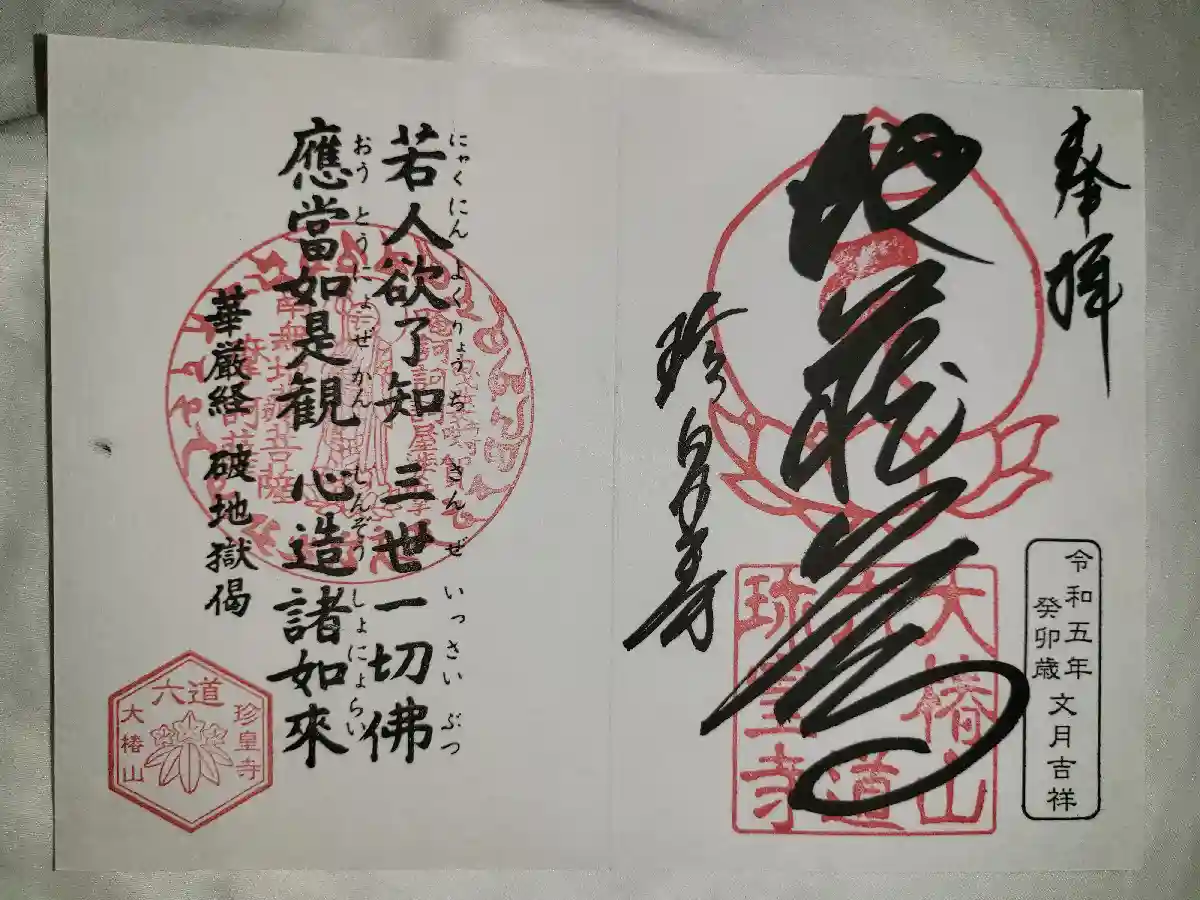 奉拝
地蔵尊
珍皇寺
令和五年
癸卯歳
文月吉祥
大椿山
六道
珍皇寺
にゃくにんよくりょうち さんぜ いっさい ぶつ
若人欲了知 三世一切佛
おうとうにょぜかん しんぞうしょにょらい
應當如是観 心造諸如來
華厳経 破地獄偈
南無地蔵菩薩
六道
珍皇寺
大椿山